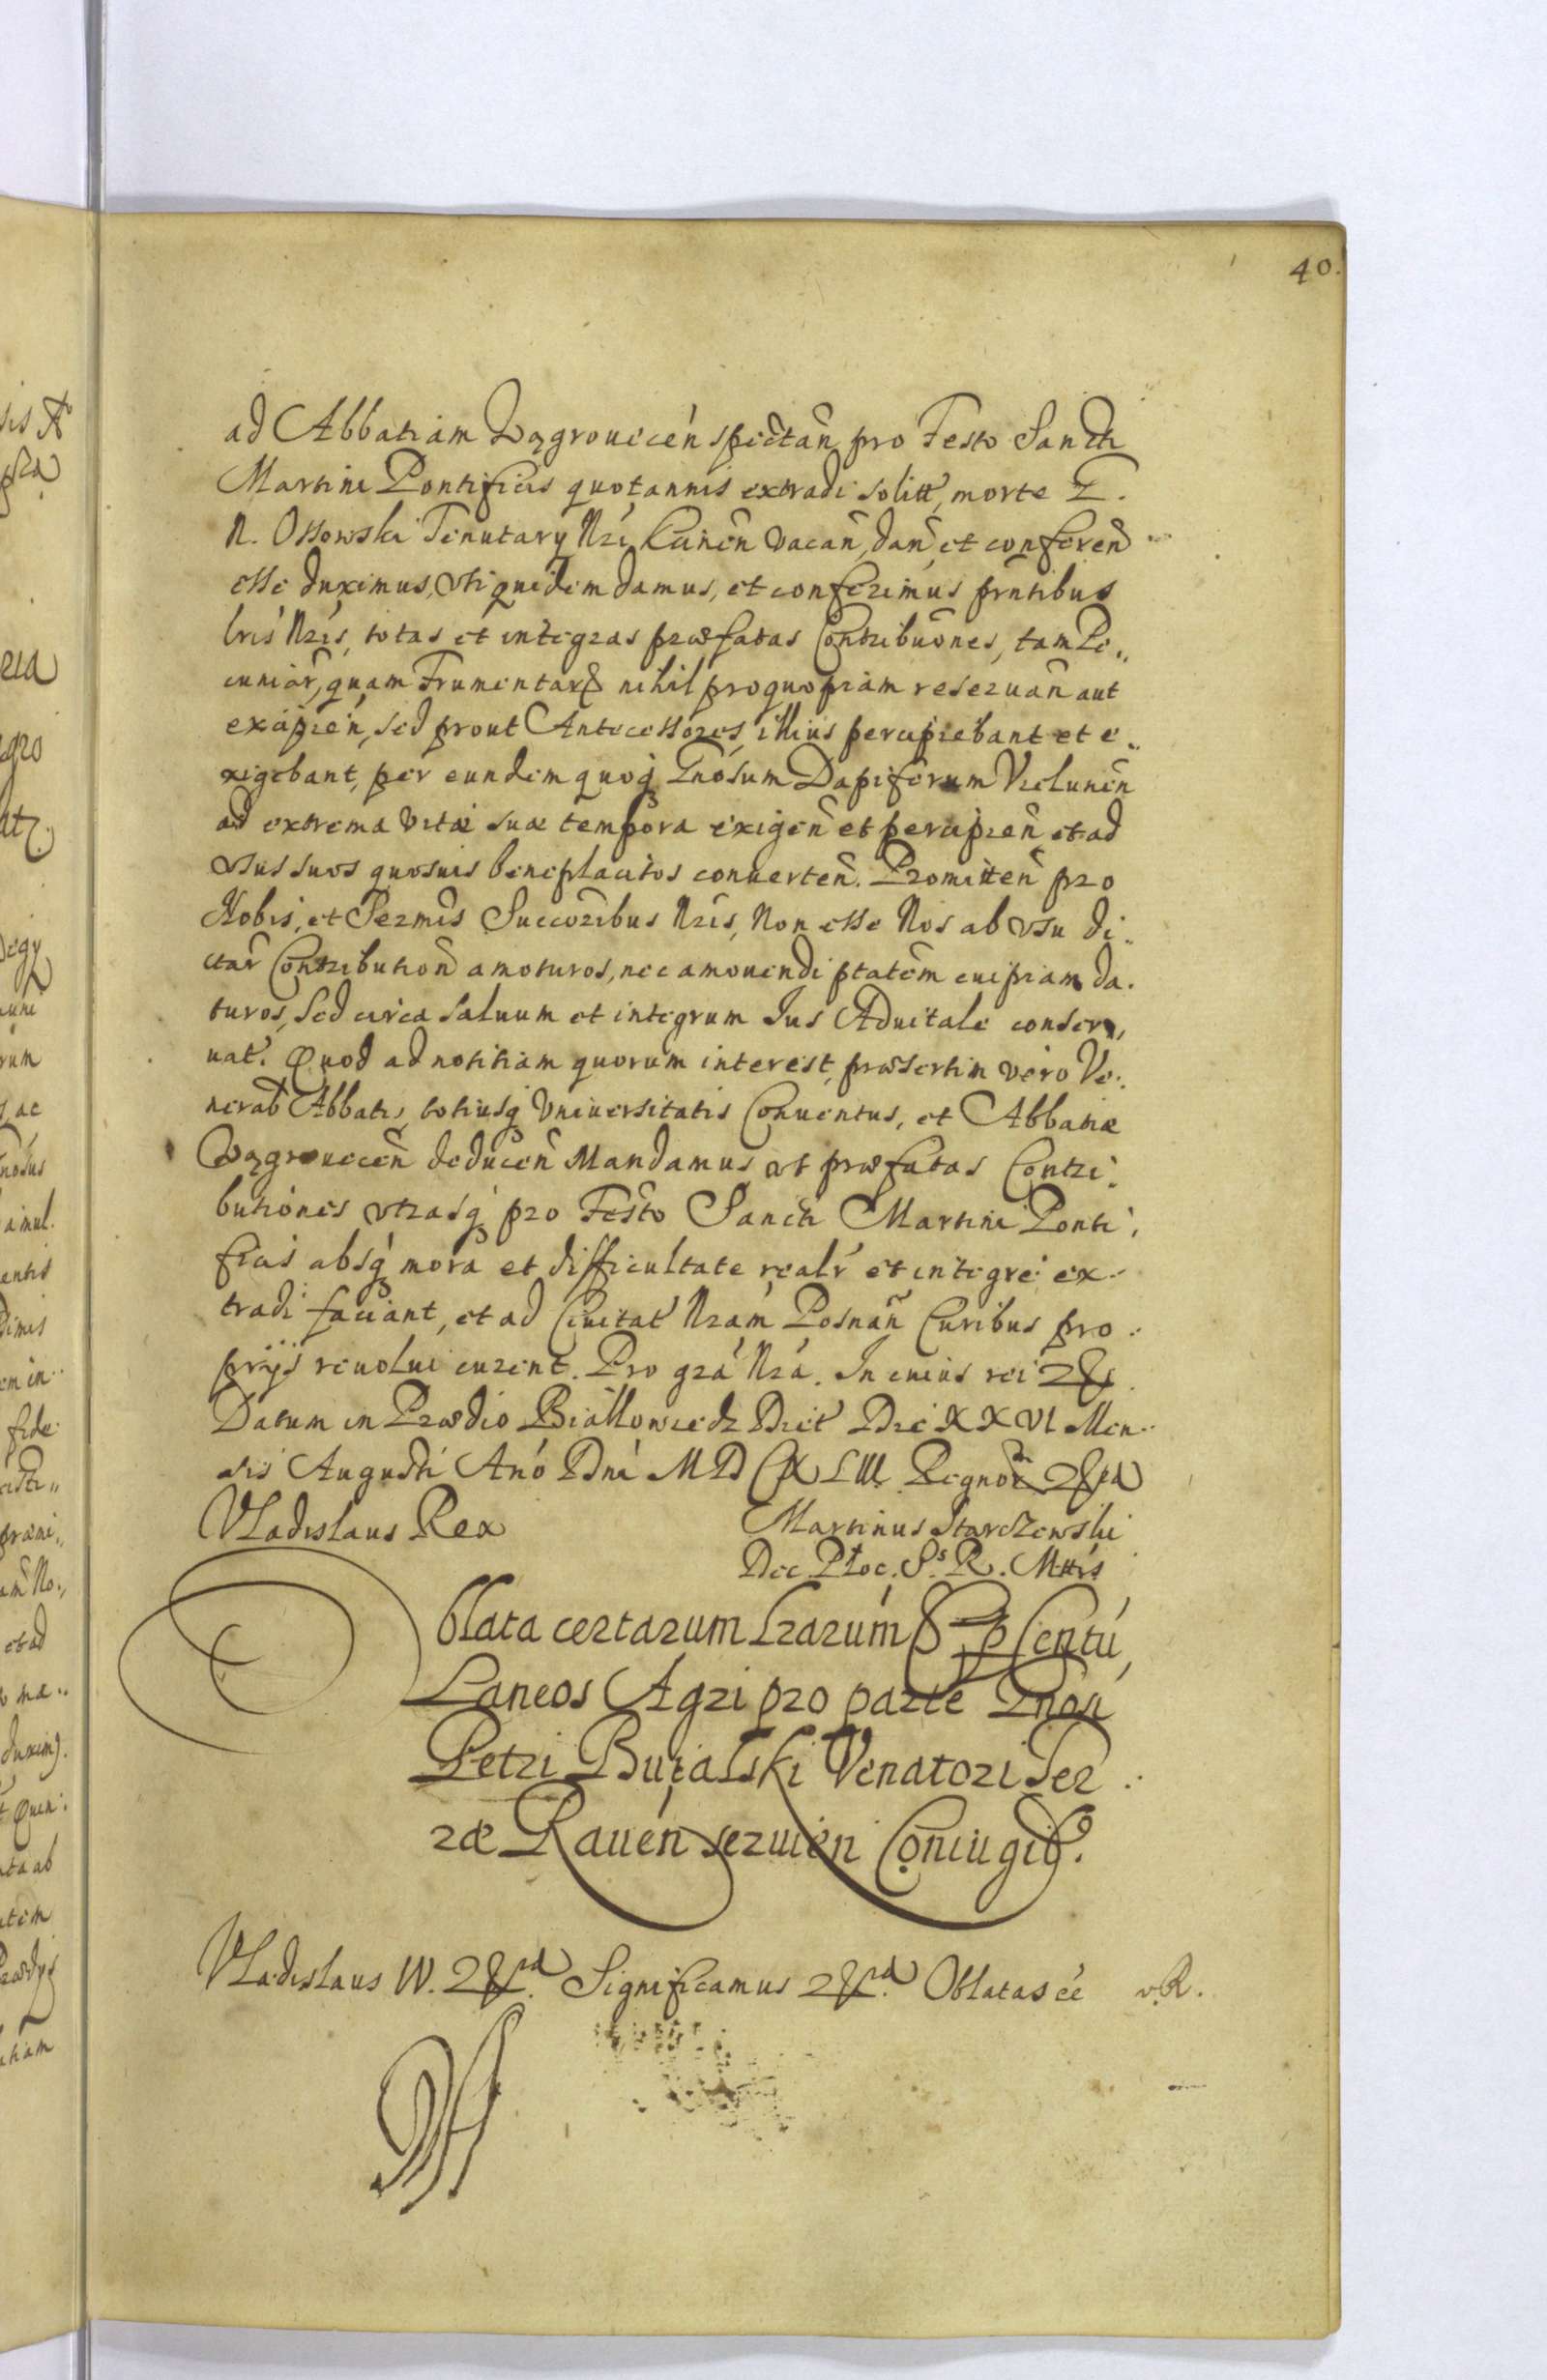 40.
ad Abbatiam Wągrouicen̄ spectan̄ pro Festo Sancti
Martini Pontificis quotannis extradi solitt, morte G.
N. Ossowski Tenutarÿ Nrĩ Kcinen̄ vacan̄, dan̄ et conferen̄
esse duximus, uti quidem damus, et conferimus prñtibus
lrĩs Nrĩs, totas et integras præfatas Contribuõnes, tam Pe„
cuniar̃, quam Frumentar̃, nihil pro quopiam reseruan̄ aut
excipien̄, sed prout Antecessores illius percipiebant et e„
xigebant, per eundem quoq́ Gnõsum Dapiferum Vielunen̄
ad extrema vitæ suæ tempora exigen̄ et percipien̄ et ad
vsus suos quosuis beneplacitos conuerten̄. Promitten̄ pro
Nobis, et Sermĩs Succõribus Nrĩs, Non esse Nos ab vsu di„
ctar̃ Contribution̄ amoturos, nec amouendi ptatem̃ cuipiam da.
turos, sed circa saluum et integrum Ius Aduitale conser„
uat̃. Quod ad notitiam quorum interest, præsertim vero Ve„
nerab̃ Abbatis, totiusq́ Vniuersitatis Conuentus, et Abbatiæ
Wągrouecen̄ deducen̄ Mandamus ut præfatas Contri„
butiones vtrasq́ pro Festo Sancti Martini Ponti„
ficis absq́ mora et difficultate realr̃ et integre ex„
tradi faciant, et ad Ciuitat̃ Nram̃ Posnan̄ Curibus pro„
prijs reuolui curent. Pro grã Nrã. In cuius rei &
Datum in Prædio Białłowiedz Dict̃ Die XXVI Men„
sis Augusti Anõ Dnĩ MDCXLIII Regnor̃ &ra
Vladislaus Rex
Martinus Starczewski
Dec Płoc. S. R. Mttis
Oblata certarum Lrarum S. p Centũ
Laneos Agri pro parte Gnõsi
Petri Bujalski Venatori Ter„
ræ Rauen̄ seruien̄ Coniugib9.
Vladislaus IV. &ra. Significamus &ra. Oblatas eé vR.